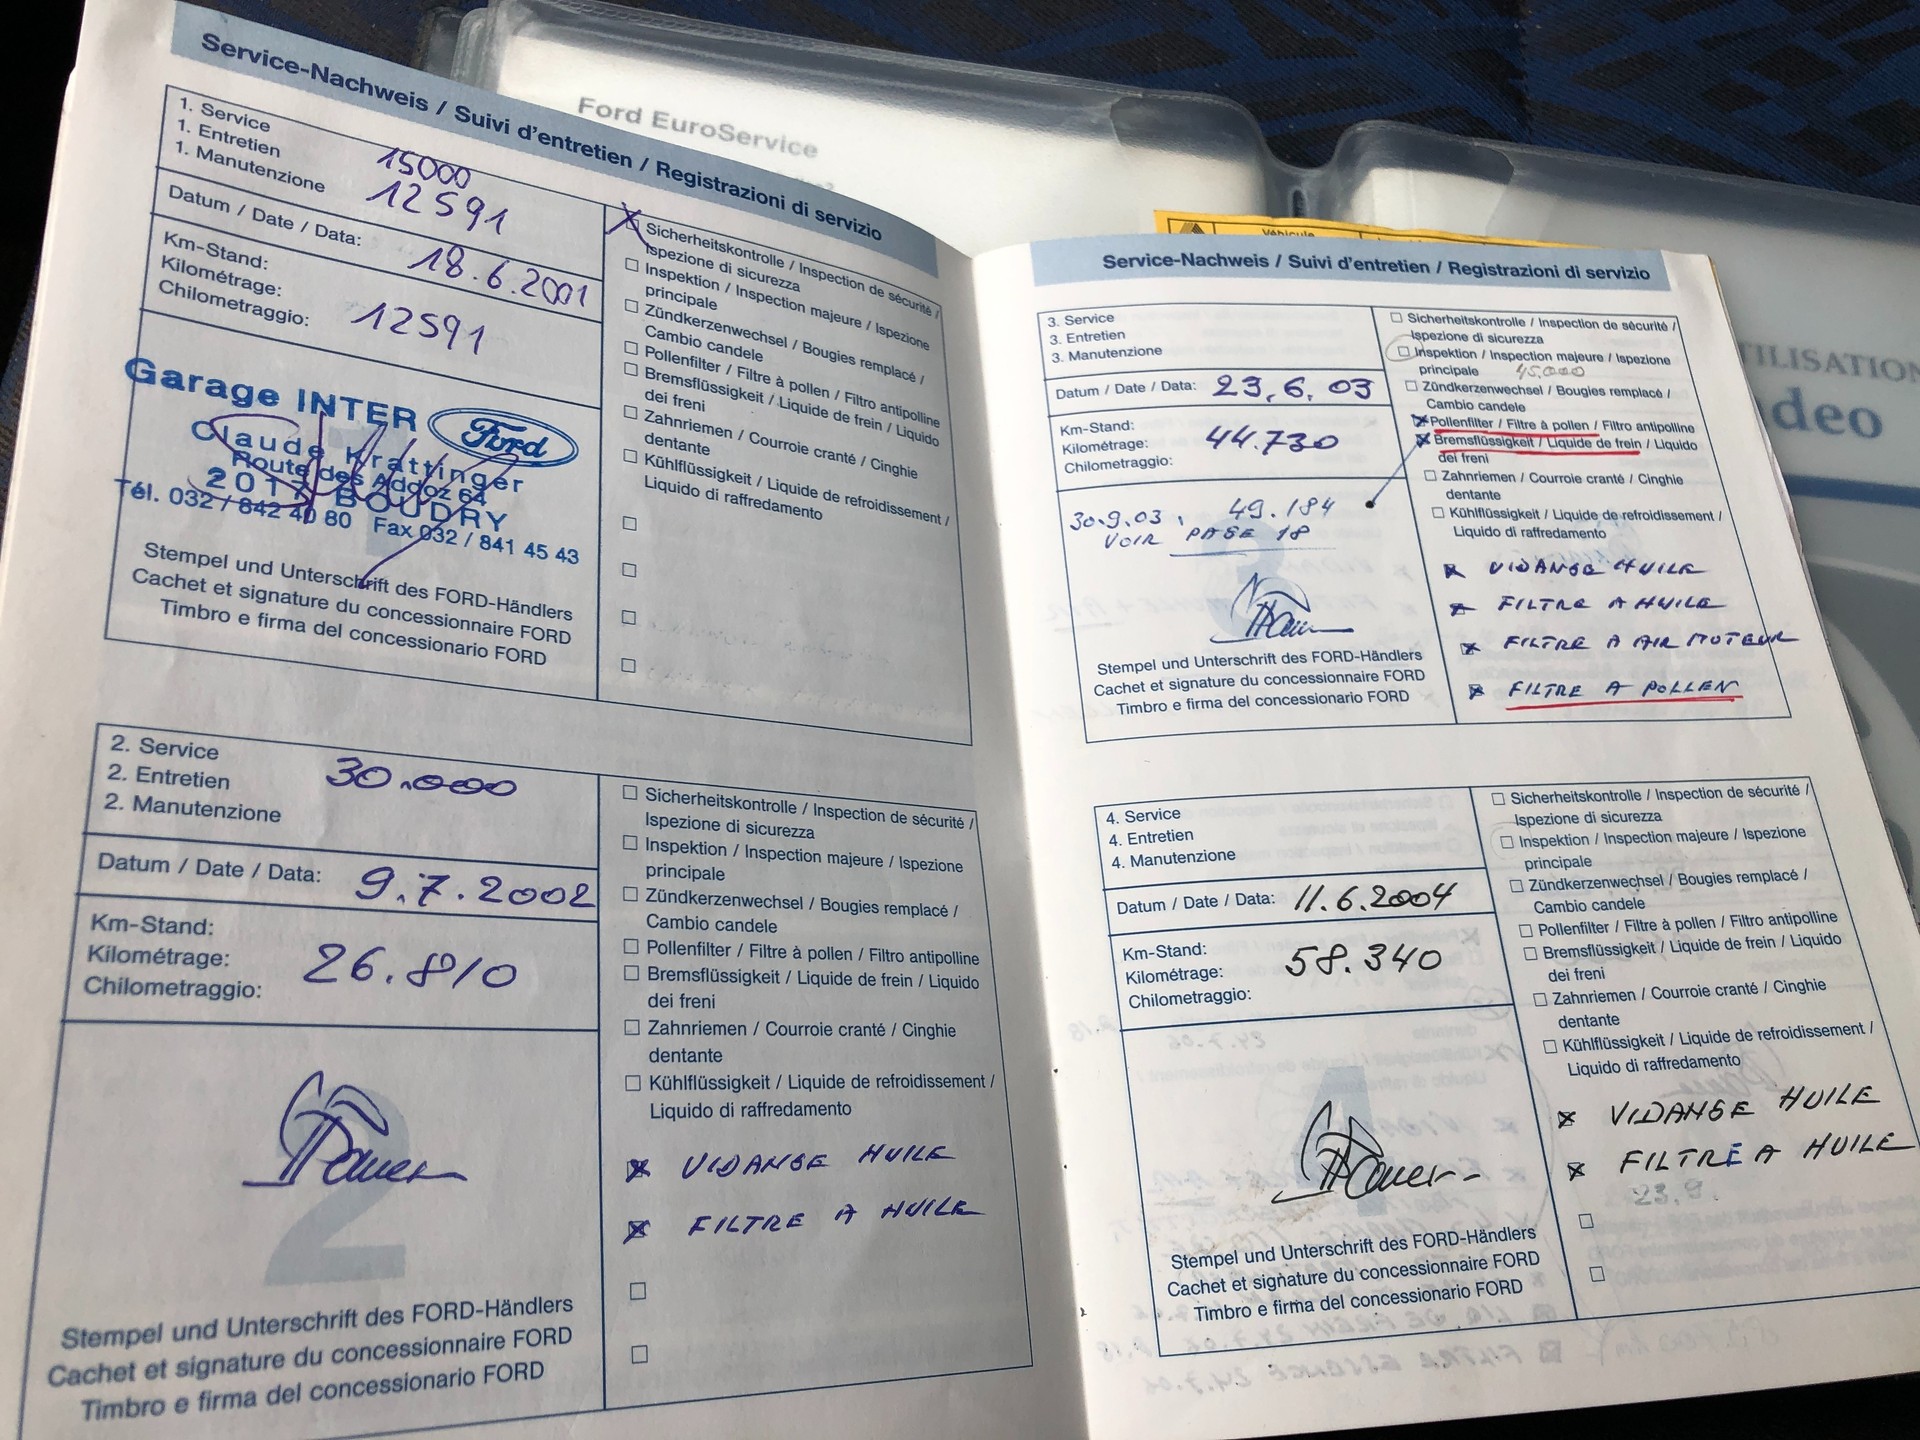 Service-Nachweis / Suivi d'entretien / Registrazioni di servizio
1. Service
1. Entretien
1. Manutenzione
15000
12591
Datum / Date / Data:
18.6.2001
Km-Stand:
Kilométrage:
Chilometraggio:
12591
Garage INTER Ford
Claude Krattinger
Route des Addoz 64
2017 BOUDRY
Tél. 032 / 842 40 80 Fax 032 / 841 45 43
Stempel und Unterschrift des FORD-Händlers
Cachet et signature du concessionnaire FORD
Timbro e firma del concessionario FORD
Sicherheitskontrolle / Inspection de sécurité /
Ispezione di sicurezza
Inspektion / Inspection majeure / Ispezione
principale
Zündkerzenwechsel / Bougies remplacé /
Cambio candele
Pollenfilter / Filtre à pollen / Filtro antipolline
Bremsflüssigkeit / Liquide de frein / Liquido
dei freni
Zahnriemen / Courroie cranté / Cinghie
dentante
Kühlflüssigkeit / Liquide de refroidissement /
Liquido di raffredamento
2. Service
2. Entretien
2. Manutenzione
30.000
Datum / Date / Data:
9.7.2002
Km-Stand:
Kilométrage:
Chilometraggio:
26.810
2
Stempel und Unterschrift des FORD-Händlers
Cachet et signature du concessionnaire FORD
Timbro e firma del concessionario FORD
Sicherheitskontrolle / Inspection de sécurité /
Ispezione di sicurezza
Inspektion / Inspection majeure / Ispezione
principale
Zündkerzenwechsel / Bougies remplacé /
Cambio candele
Pollenfilter / Filtre à pollen / Filtro antipolline
Bremsflüssigkeit / Liquide de frein / Liquido
dei freni
Zahnriemen / Courroie cranté / Cinghie
dentante
Kühlflüssigkeit / Liquide de refroidissement /
Liquido di raffredamento
VIDANGE HUILE
FILTRE A HUILE
Ford EuroService
Véhicule
Service-Nachweis / Suivi d'entretien / Registrazioni di servizio
3. Service
3. Entretien
3. Manutenzione
Datum / Date / Data:
23.6.03
Km-Stand:
Kilométrage:
Chilometraggio:
44.730
30.9.03, 49.184
VOIR PAGE 18
3
Stempel und Unterschrift des FORD-Händlers
Cachet et signature du concessionnaire FORD
Timbro e firma del concessionario FORD
Sicherheitskontrolle / Inspection de sécurité /
Ispezione di sicurezza
Inspektion / Inspection majeure / Ispezione
principale 45.000
Zündkerzenwechsel / Bougies remplacé /
Cambio candele
Pollenfilter / Filtre à pollen / Filtro antipolline
Bremsflüssigkeit / Liquide de frein / Liquido
dei freni
Zahnriemen / Courroie cranté / Cinghie
dentante
Kühlflüssigkeit / Liquide de refroidissement /
Liquido di raffredamento
VIDANGE HUILE
FILTRE A HUILE
FILTRE A AIR MOTEUR
FILTRE A POLLEN
4. Service
4. Entretien
4. Manutenzione
Datum / Date / Data:
11.6.2004
Km-Stand:
Kilométrage:
Chilometraggio:
58.340
4
Stempel und Unterschrift des FORD-Händlers
Cachet et signature du concessionnaire FORD
Timbro e firma del concessionario FORD
Sicherheitskontrolle / Inspection de sécurité /
Ispezione di sicurezza
Inspektion / Inspection majeure / Ispezione
principale
Zündkerzenwechsel / Bougies remplacé /
Cambio candele
Pollenfilter / Filtre à pollen / Filtro antipolline
Bremsflüssigkeit / Liquide de frein / Liquido
dei freni
Zahnriemen / Courroie cranté / Cinghie
dentante
Kühlflüssigkeit / Liquide de refroidissement /
Liquido di raffredamento
VIDANGE HUILE
FILTRE A HUILE
23.9.
TILISATION
deo